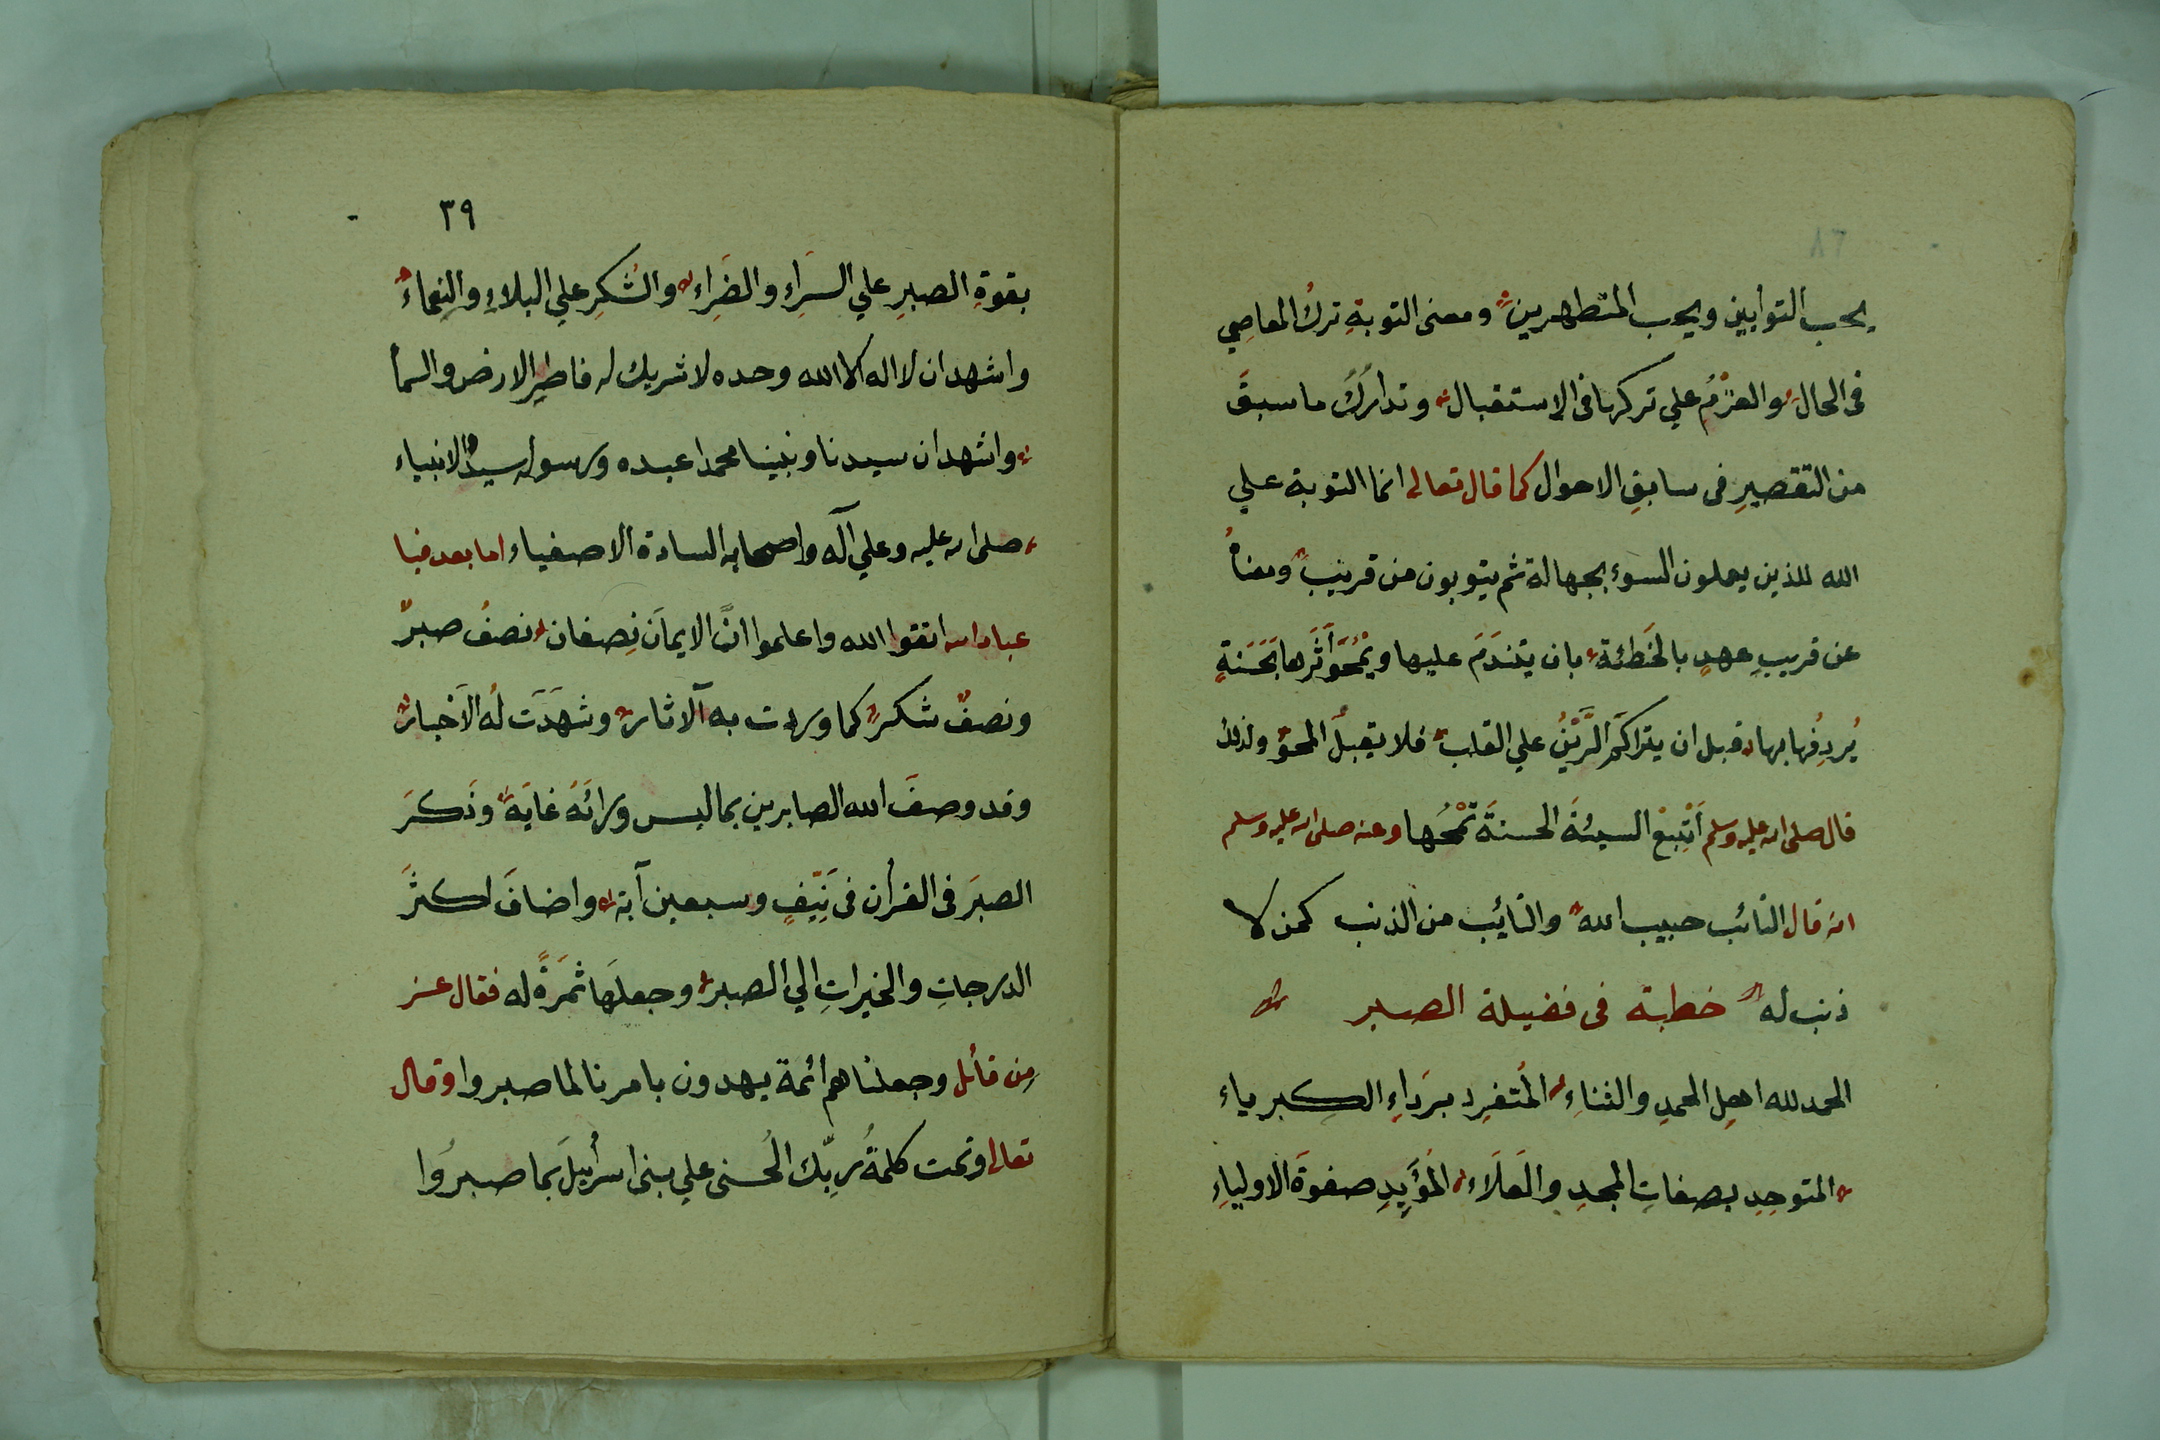 يحب التوابين ويحب المتطهرين ومعنى التوبةِ تركُ المعاصِي
فى الحال والعزْمُ علي تركها فى الاستقبال وتدارُكُ ما سبقَ
من التقصيرِ فى سابقِ الاحوال كما قال تعالى انما التوبة علي
الله للذين يعملون السوء بجهالة ثم يتوبون من قريب ومعناهُ
عن قريبِ عهدٍ بالخَطئة بان يتندَمَ عليها ويَمْحُوَ أثَرَها بحَسَنةٍ
يُردِفُها بها قبل ان يتراكَمَ الرَّيْنُ علي القلب فلا يقبلُ المحوَ ولذلك
قال صلى الله عليه وسلم أتْبِعْ السيئةَ الحسنةَ تمْحُها وعنه صلى الله عليه وسلم
انه قال التائب حبيب الله والتايِب من الذنب كمن لا
ذنب له خطبة فى فضيلة الصبر
الحمد لله اهلِ الحمدِ والثناءِ المُتفرِد برَداءِ الكبرياء
المتوحِدِ بصِفاتِ المجدِ والعَلَاء المُؤَيِدِ صفوَةَ الاولياءِ
٣٩
بقوةِ الصبرِ علي السَراءِ والضَراء والشُكرِ علي البلاءِ والنِعماءُ
واشهد ان لا اله الا الله وحده لا شريك له فاطِر الارض والسما
واشهد ان سيدنا ونبينا محمدا عبده ورسوله سيدُ الانبياء
صلى الله عليه وعلي آله واصحابه السادة الاصفياء اما بعد فيا
عباد الله اتقوا الله واعلموا انَّ الايمانَ نِصفان نصفُ صبرٌ
ونصفٌ شكرٌ كما وردت به الآثار وشهَدَت لُه الاَخْبارُ
وقد وصفَ الله الصابرين بما ليس ورائَهُ غايَةً وذَكرَ
الصبرَ فى القرأن فى نَيِّفٍ وسبعين آية واضافَ اكثرَ
الدرجاتِ والخيراتِ الي الصبر وجعلَها ثمَرَةً له فقال عز
من قائل وجعلناهم ائمة يهدون بامرنا لما صبروا وقال
تعالى وتمت كلمةُ ربِّك الحُسنى علي بنى اسرأيلَ بما صبرُوا